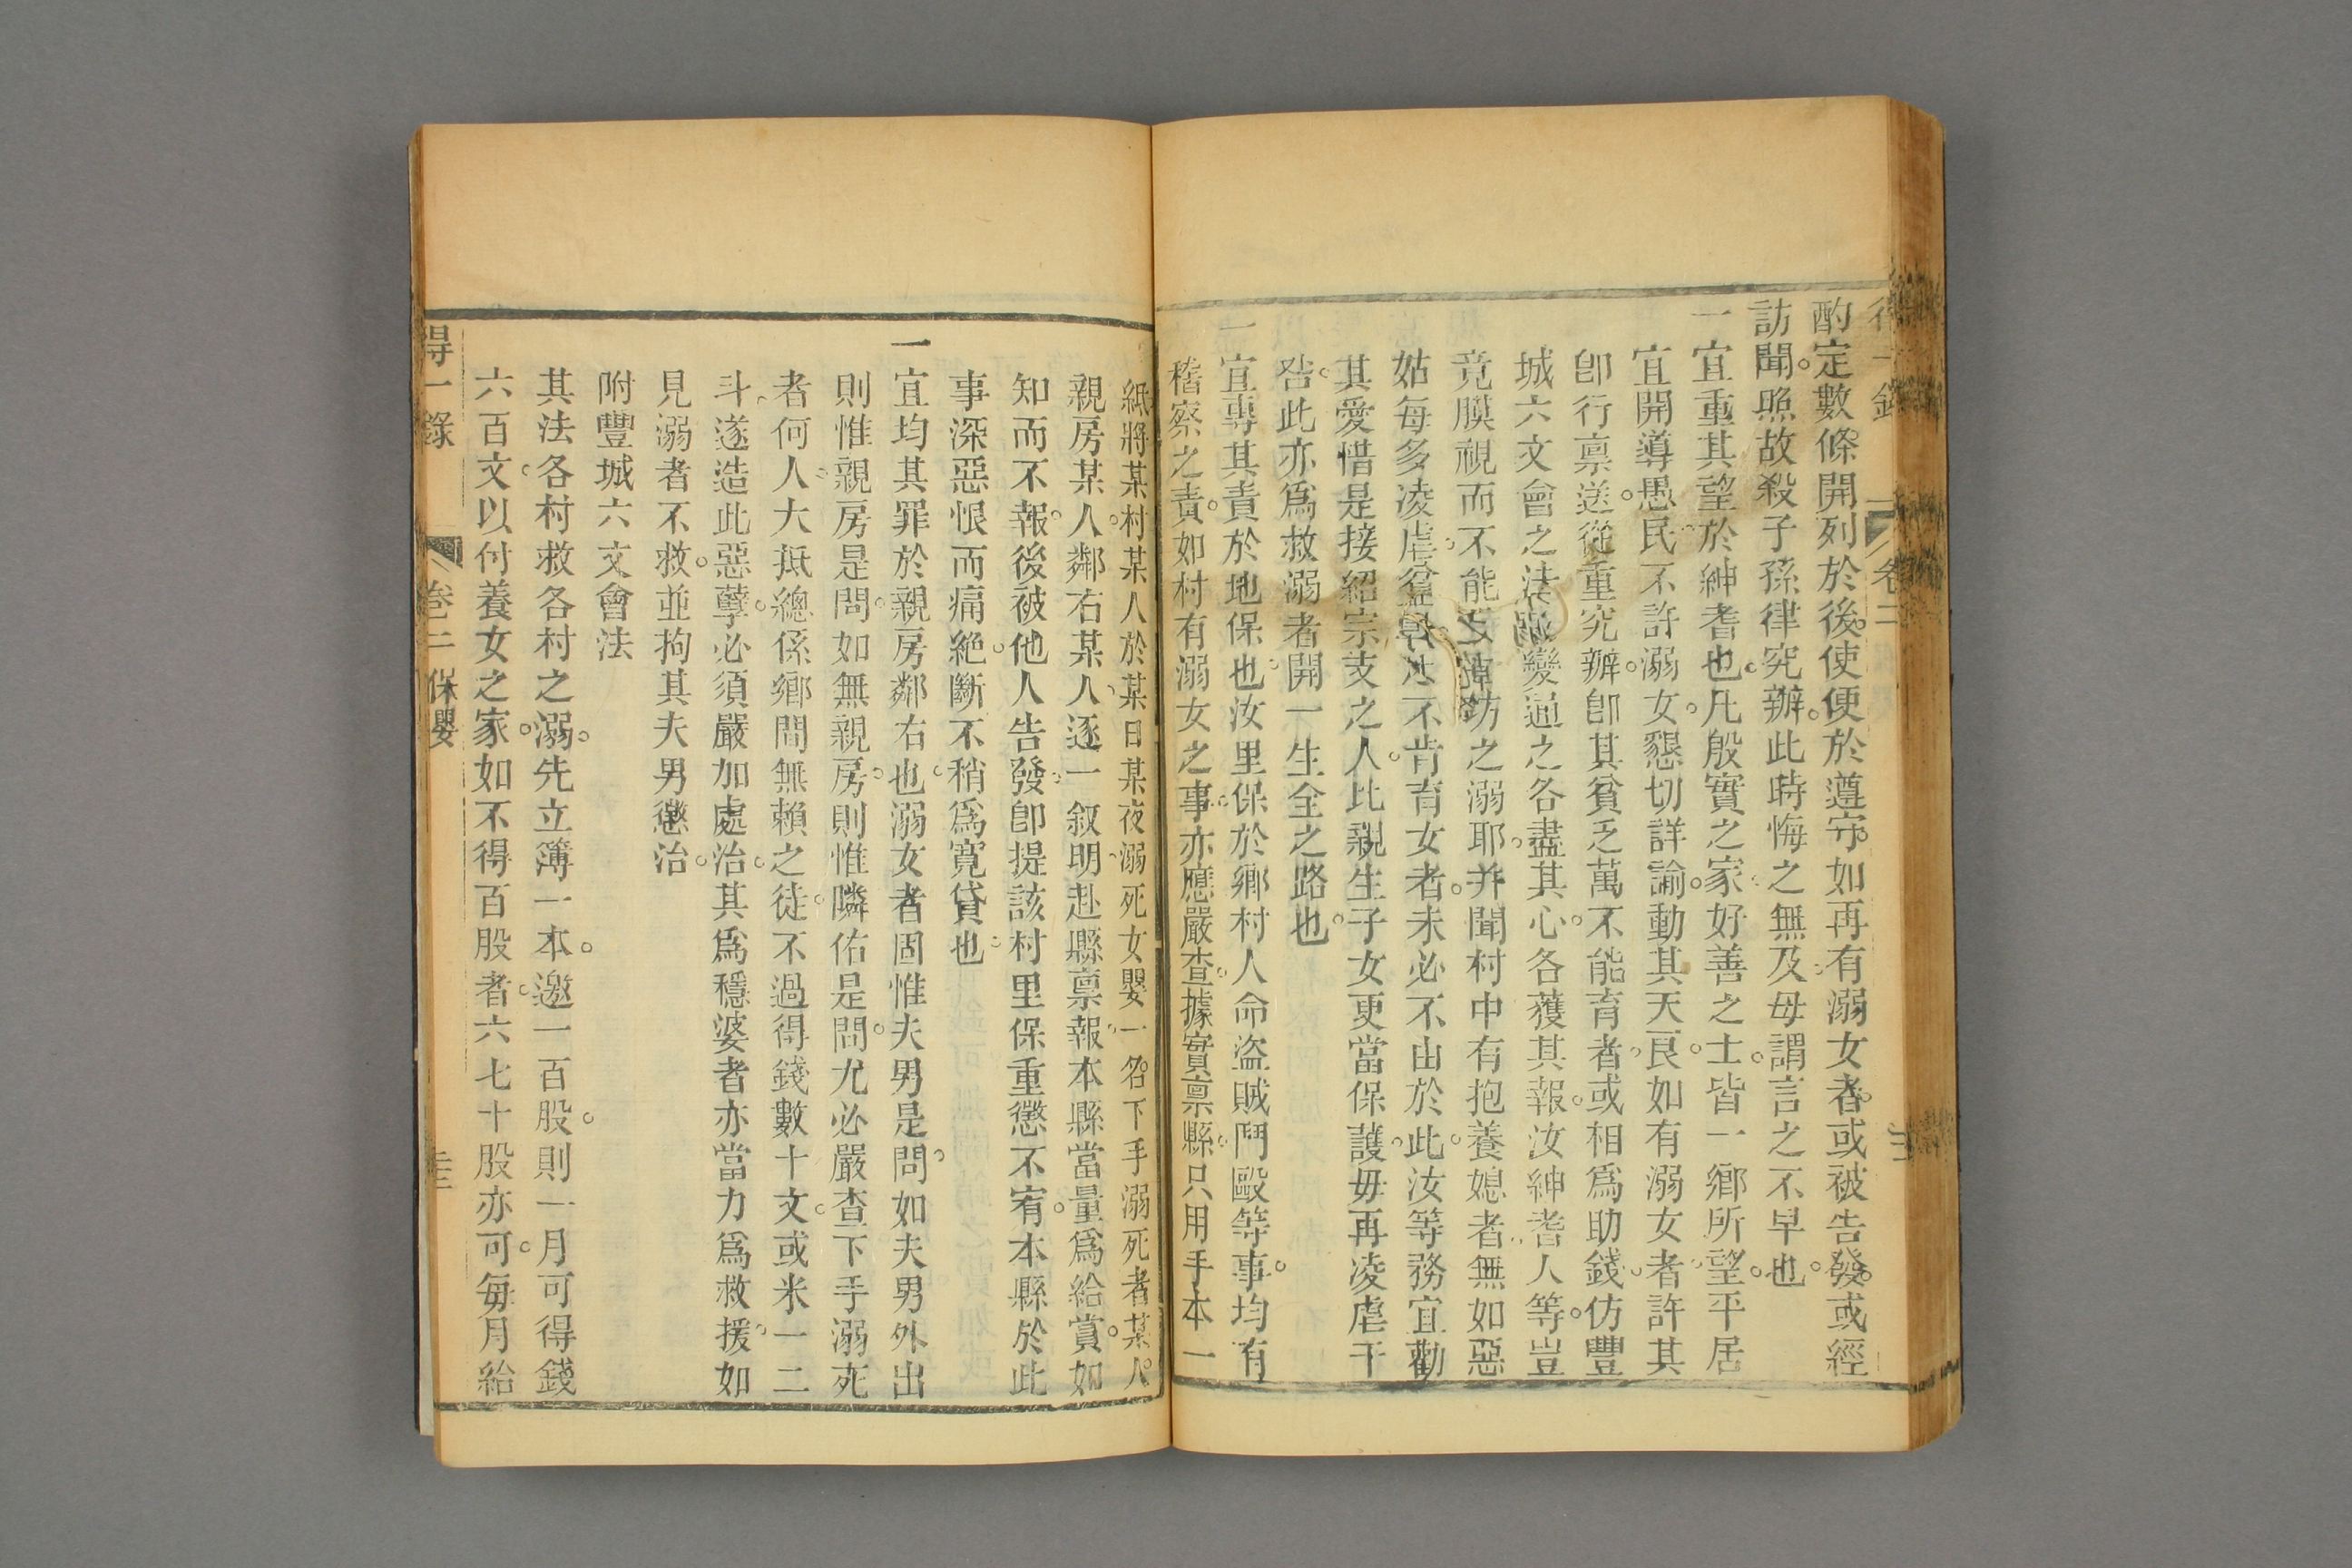 酌定數條開列於後使便於遵守如再有溺女者或被告發或經
訪聞照故殺子孫律究辦此時悔之無及毋謂言之不早也
一宜重其望於紳耆也凡殷實之家好善之士皆一鄉所望平居
宜開導愚民不許溺女懇切詳諭動其天良如有溺女者許其
卽行禀送從重究辦卽其貧乏萬不能育者或相爲助錢仿豐
城六文會之法變通之各盡其心各獲其報汝紳耆人等豈
竟膜視而不能 坊之溺耶并聞村中有抱養媳者無如惡
姑每多凌虐 不肯育女者未必不由於此汝等務宜勸
其愛惜是接紹宗支之人比親生子女更當保護毋再凌虐干
咎此亦爲救溺者開一生全之路也
一宜專其責於地保也汝里保於鄉村人命盜賊鬥毆等事均有
稽察之責如村有溺女之事亦應嚴查據實禀縣只用手本一
紙將某村某人於某日某夜溺死女嬰一名下手溺死者某人
親房某人鄰右某人逐一叙明赴縣禀報本縣當量爲給賞如
知而不報後被他人告發卽提該村里保重懲不宥本縣於此
事深惡恨而痛絕斷不稍爲寬貸也
一宜均其罪於親房鄰右也溺女者固惟夫男是問如夫男外出
則惟親房是問如無親房則惟隣佑是問尤必嚴查下手溺死
者何人大抵總係鄉間無賴之徒不過得錢數十文或米一二
斗遂造此惡孽必須嚴加處治其爲穩婆者亦當力爲救援如
見溺者不救並拘其夫男懲治
附豐城六文會法
其法各村救各村之溺先立簿一本邀一百股則一月可得錢
六百文以付養女之家如不得百股者六七十股亦可每月給
得一錄 卷二 保嬰